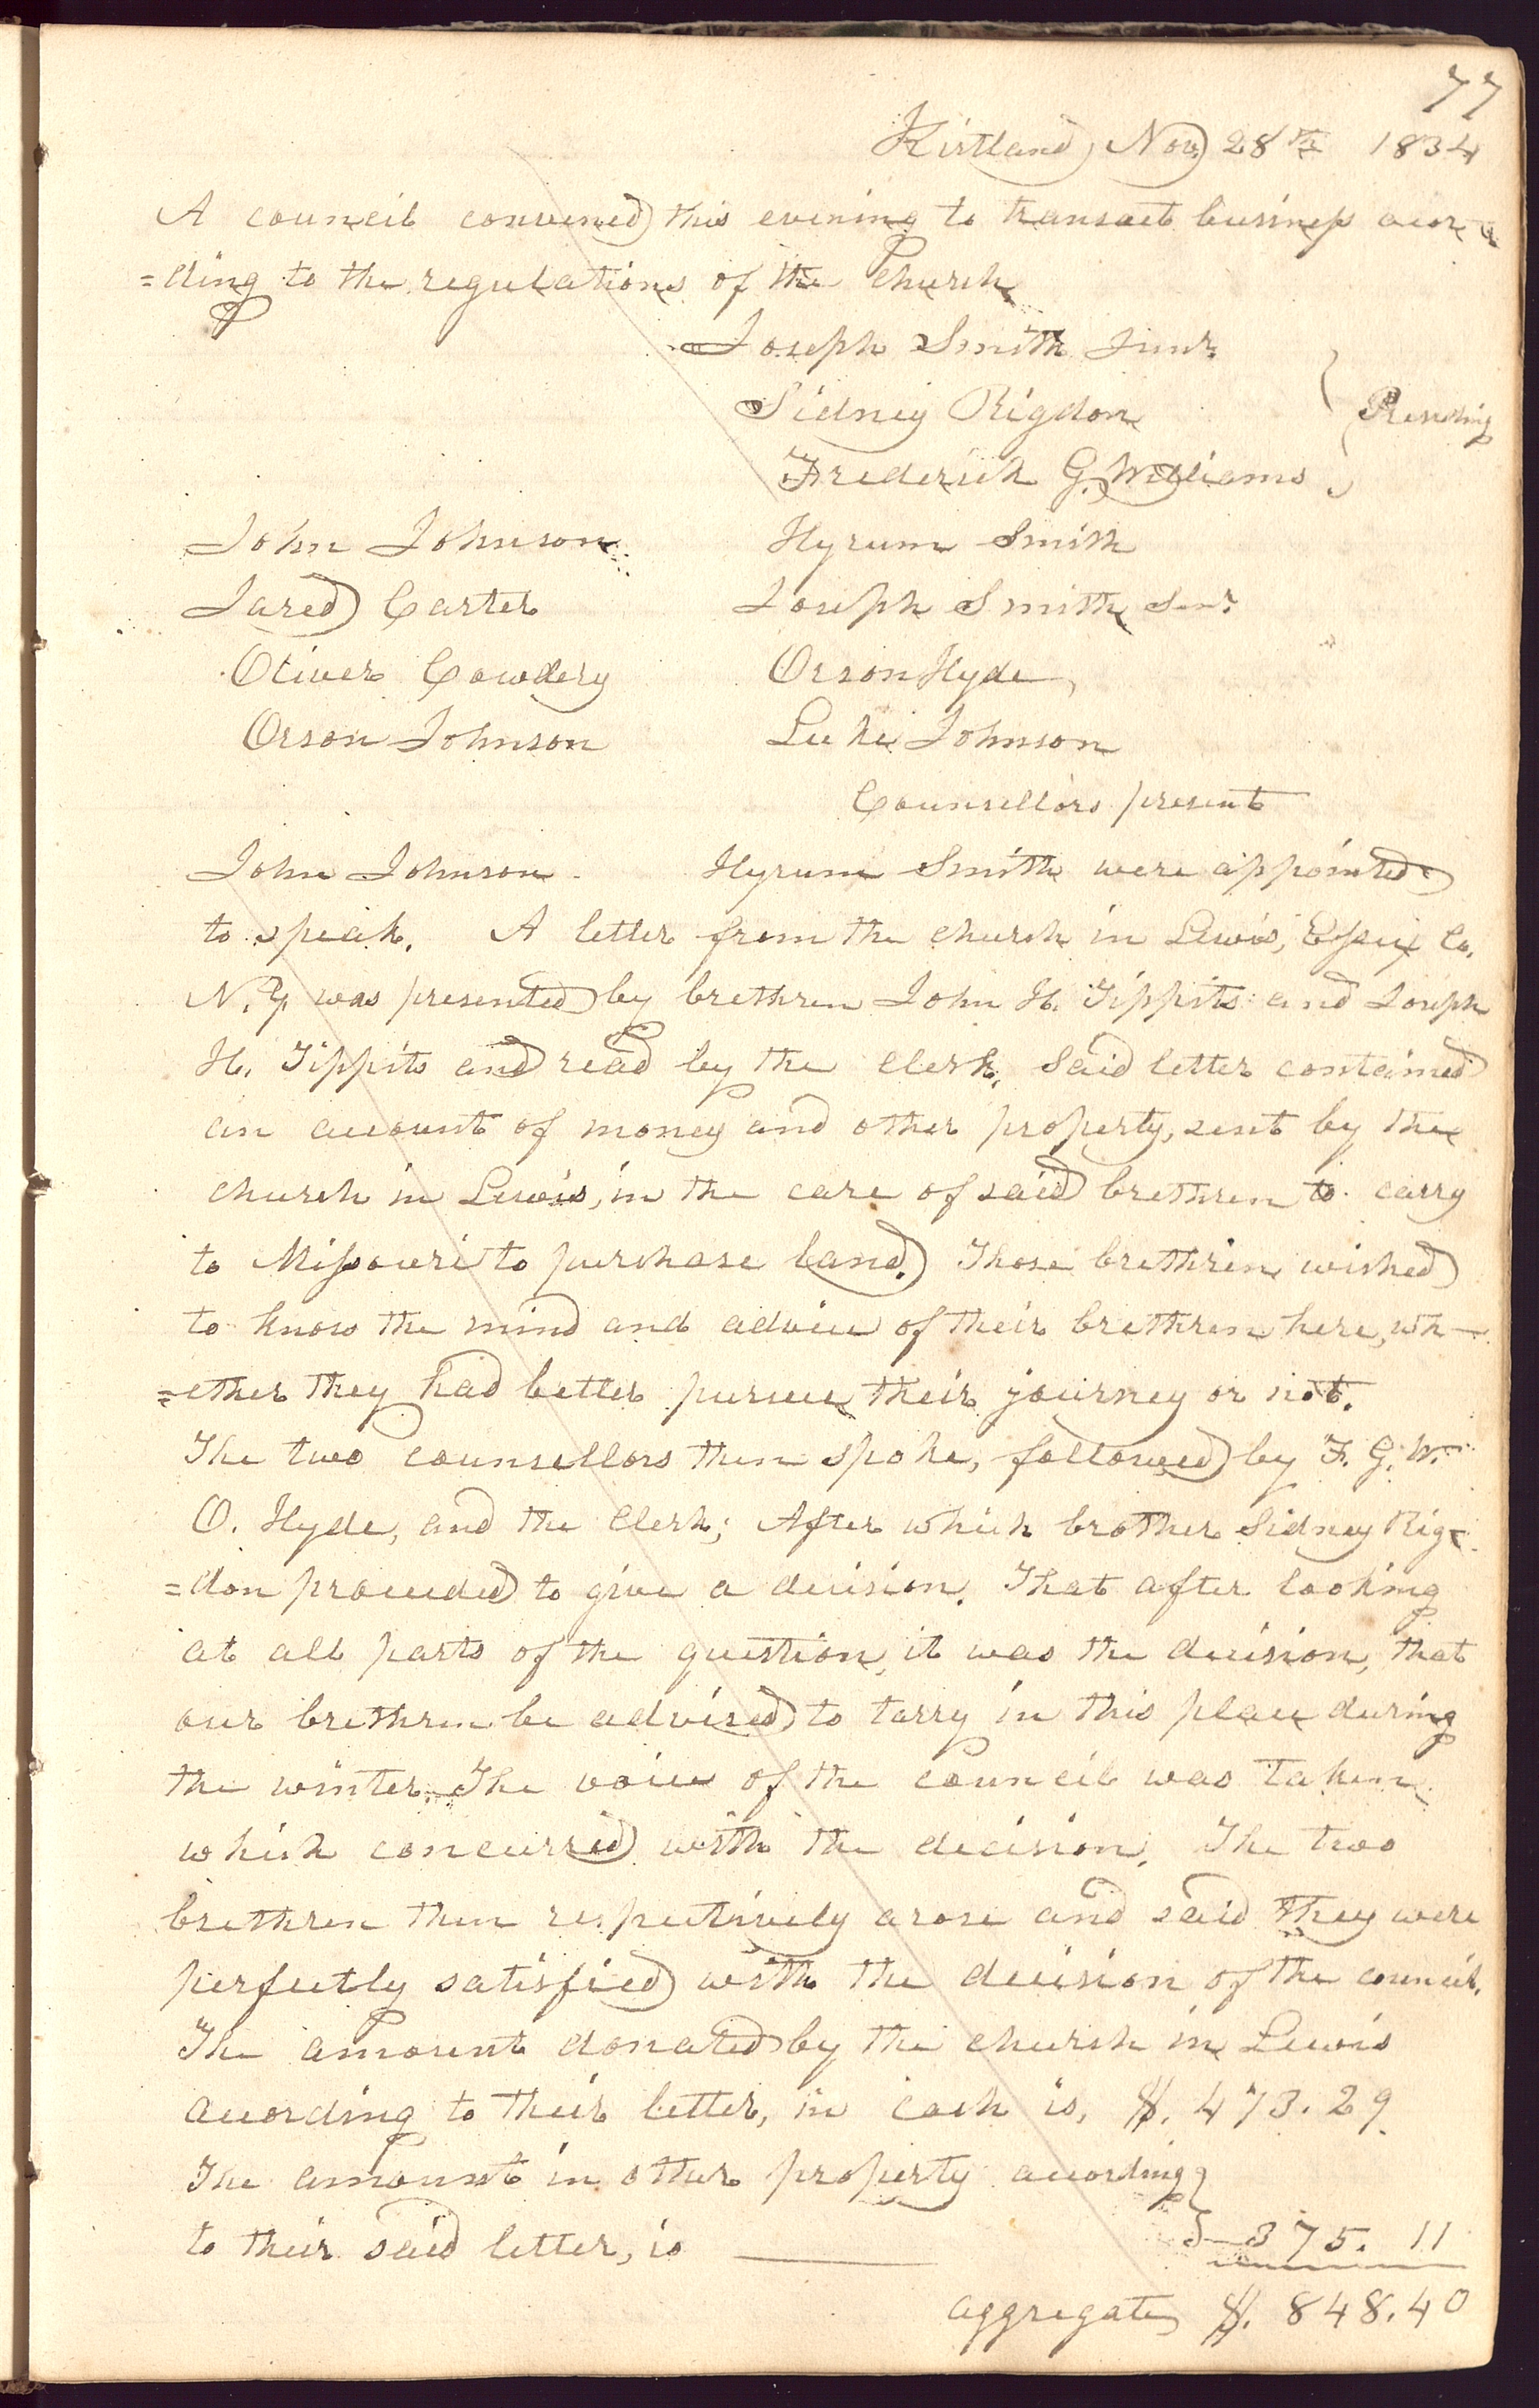 77
Kirtland, Nov. 28th 1834
A council convened this evening to transact business accor-
=ding to the regulations of the Church.
Joseph Smith Junr.
Sidney Rigdon } Presiding
Frederick G. Williams
John Johnson Hyrum Smith
Jared Carter Joseph Smith Senr.
Oliver Cowdery Orson Hyde,
Orson Johnson Luke Johnson
Counsellors present
John Johnson. Hyrum Smith were appointed
to speak. A letter from the church in Lewis, Essex Co.
N.Y. was presented by brethren John H. Tippits and Joseph
H. Tippits and read by the Clerk. Said letter contained
an account of money and other property, sent by the
church in Lewis, in the care of said brethren to carry
to Missouri to purchase land. Those brethren wished
to know the mind and advice of their brethren here, wh-
=ether they had better pursue their journey or not.
The two counsellors then spoke, followed by F. G. W.
O. Hyde, and the Clerk; After which brother Sidney Rig-
=don proceeded to give a decision. That after looking
at all parts of the question, it was the decision, that
our brethren be advised to tarry in this place during
the winter. The voice of the council was taken
which concurred with the decision. The two
brethren then respectively arose and said they were
perfectly satisfied with the decision of the council.
The amount donated by the church in Lewis
according to their letter, in cash is, $. 473.29
The amount in other property according }
to their said letter, is ——— 375. 11
aggregate $. 848.40